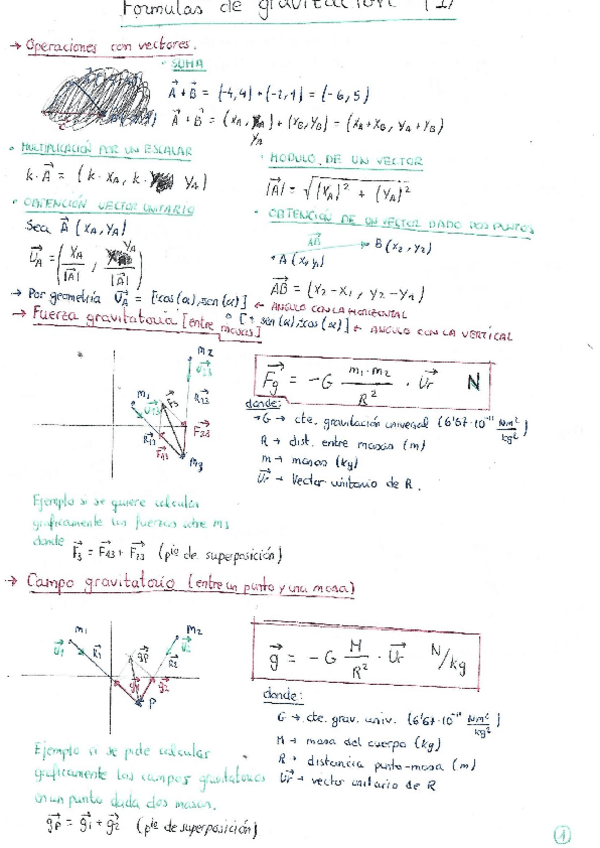 Formulas de gravitación (1)
→ Operaciones con vectores.
· SUMA
A⃗ + B⃗ = (-4,4) + (-2,1) = (-6,5)
A⃗ + B⃗ = (XA, YA) + (XB, YB) = (XA+XB, YA+YB)
· MULTIPLICACIÓN POR UN ESCALAR
k·A⃗ = (k·XA, k·YA)
· MODULO DE UN VECTOR
|A⃗| = √((XA)² + (YA)²
· OBTENCIÓN VECTOR UNITARIO
Sea A⃗ (XA, YA)
U⃗A = (XA/|A⃗|, YA/|A⃗|)
· OBTENCIÓN DE UN VECTOR DADO DOS PUNTOS
AB⃗
B (X2, Y2)
· A (X1, Y1)
AB⃗ = (X2-X1, Y2-Y1)
→ Por geometría U⃗A = [±cos(α), ±sen(α)] ← ANGULO CON LA HORIZONTAL
o [± sen(α), ±cos(α)] ← ANGULO CON LA VERTICAL
→ Fuerza gravitatoria [entre masas]
m2
U⃗23
m1
U⃗13
F⃗3
R⃗13
R⃗13
F⃗23
F⃗13
m3
F⃗g = -G m1·m2/R² · U⃗r N
donde:
→ G → cte. gravitación universal (6'67·10⁻¹¹ Nm²/kg²)
R → dist. entre masas (m)
m → masas (kg)
U⃗r → Vector unitario de R.
Ejemplo si se quiere calcular
graficamente las fuerzas sobre m3
donde
F⃗3 = F⃗13 + F⃗23 (pie de superposición)
→ Campo gravitatorio (entre un punto y una masa)
m1
U⃗1
R⃗1
m2
U⃗2
R⃗2
g⃗P
g⃗1
g⃗2
P
g⃗ = -G M/R² · U⃗r N/kg
donde:
G → cte. grav. univ. (6'67·10⁻¹¹ Nm²/kg²)
M → masa del cuerpo (kg)
R → distancia punto-masa (m)
U⃗r → vector unitario de R
Ejemplo si se pide calcular
graficamente los campos gravitatorios
en un punto dada dos masas.
g⃗P = g⃗1 + g⃗2 (pie de superposición)
1